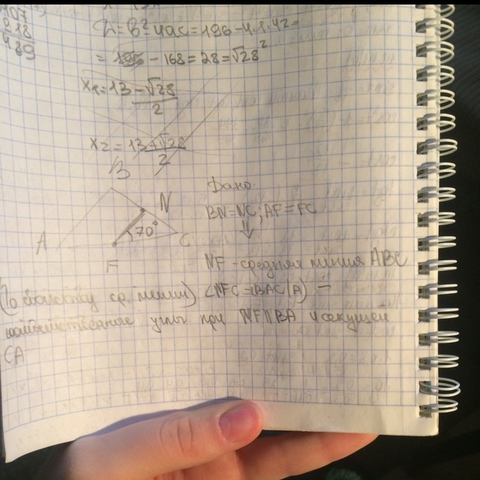 107
818
489
D = b² 4ac = 196 - 4.1.42=
= 196 - 168 = 28 = √28²
X₁ = 13 - √28
2
X₂ = 13 + √28
2
B
N
A
70°
C
F
Дано
BN=NC; AF=FC
⇓
NF - средняя линия ABC
(по свойству ср. линии) ∠NFC = BAC(A) -
углы при NF || BA и секущей
CA